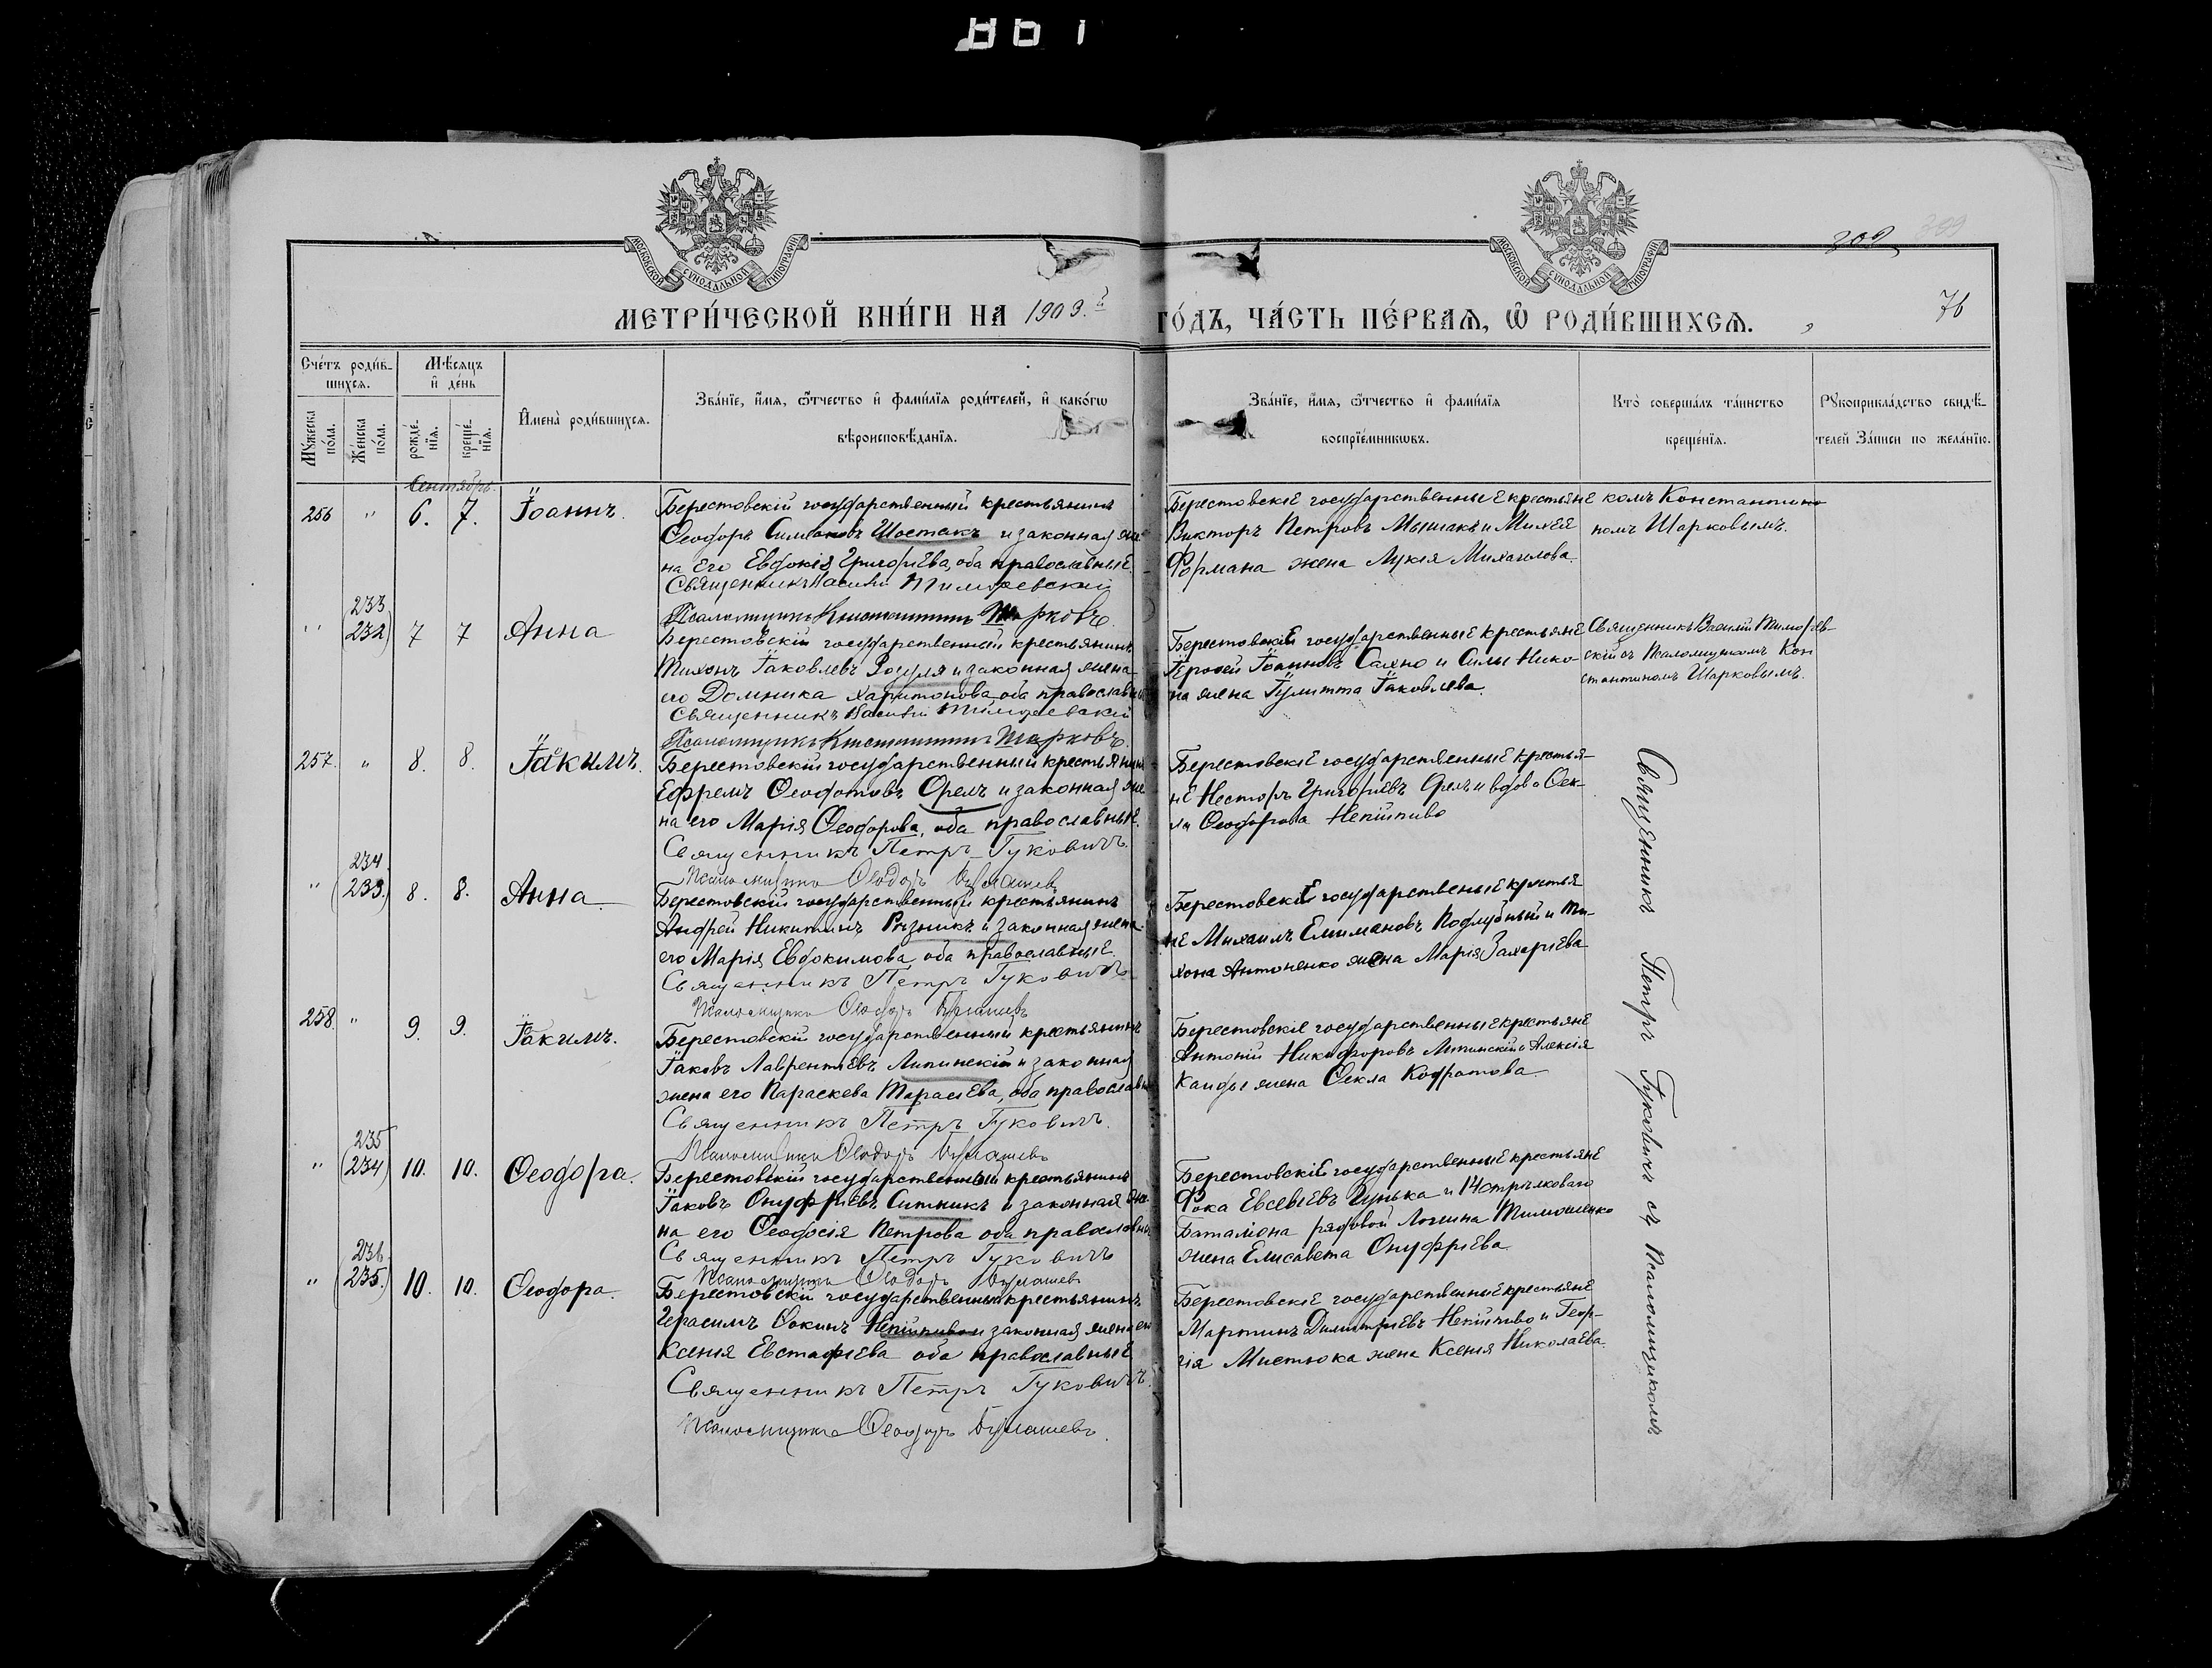 МОСКОВСКОЙ СѴНОДАЛЬНОЙ ТИПОГРАФІИ
МОСКОВСКОЙ СѴНОДАЛЬНОЙ ТИПОГРАФІИ
309
МЕТРИ́ЧЕСКОЙ КНИ́ГИ НА 1903.й ГО́ДЪ, ЧА́СТЬ ПЕ́РВАѦ, Ѡ РОДИ́ВШИХСѦ.
76
Сче́тъ роди́в-
шихсѧ.
Мѣ́сѧцъ
и҆ де́нь
Мꙋ́жеска по́ла.
Же́нска по́ла.
рожде́-
нїѧ.
креще́-
нїѧ.
И҆мена̀ роди́вшихсѧ.
Зва́нїе, и҆́мѧ, ѻ҆́тчество и҆ фами́лїѧ роди́телей, и҆ како́гѡ
вѣроисповѣ́данїѧ.
Зва́нїе, и҆́мѧ, ѻ҆́тчество и҆ фами́лїѧ
воспрїе́мникѡвъ.
Кто̀ соверша́лъ та́инство
креще́нїѧ.
Рꙋкоприкла́дство свидѣ́-
телей за́писи по жела́нїю.
Сентябрь.
256 " 6. 7. Іоаннъ.
Берестовскій государственный крестьянинъ
Ѳеодоръ Симеоновъ Шостакъ и законная же-
на его Евдокія Григоріева, оба православные.
Священникъ Василій Тимоѳеевскій
Псаломщикъ Константинъ Шарковъ.
Берестовскіе государственные крестьяне
Викторъ Петровъ Мышакъ и Михея
Фурмана жена Лукія Михаилова.
комъ Константино
номъ Шарковымъ.
" 233 (232) 7 7 Анна
Берестовскій государственный крестьянинъ
Тихонъ Іаковлевъ Рогуля и законная жена
его Домника Харитонова, оба православные
Священникъ Василій Тимоѳеевскій
Псаломщикъ Константинъ Шарковъ.
Берестовскіе государственные крестьяне
Іероѳей Іоанновъ Сахно и Силы Нико-
на жена Іулитта Іаковлева.
Священникъ Василій Тимоѳеев-
скій съ Псаломщикомъ Кон
стантиномъ Шарковымъ.
257. " 8. 8. Іакимъ.
Берестовскій государственный крестьянинъ
Ефремъ Ѳеодотовъ Орелъ и законная же-
на его Марія Ѳеодорова, оба православные.
Священникъ Петръ Гуковичъ.
Псаломщикъ Ѳеодоръ
Берестовскіе государственные крестья-
не Несторъ Григоріевъ Орелъ и вдова Ѳек-
ла Ѳеодорова Непійпиво
" 234 (233.) 8. 8. Анна
Берестовскій государственный крестьянинъ
Андрей Никитинъ Рѣзникъ и законная жена
его Марія Евдокимова оба православные.
Священникъ Петръ Гуковичъ
Псаломщикъ Ѳеодоръ
Берестовскіе государственные крестья
не Михаилъ Поддубный и Ти-
хона Антоненко жена Марія Захаріева
258. " 9. 9. Іакимъ.
Берестовскій государственный крестьянинъ
Іаковъ Лаврентіевъ Липинскій и законная
жена его Параскева Тарасіева, оба православные
Священникъ Петръ Гуковичъ.
Псаломщикъ Ѳеодоръ
Берестовскіе государственные крестьяне
Антоній Никифоровъ Липинскій и Алексія
жена Ѳекла Кодратова
" 235 (234) 10. 10. Ѳеодора.
Берестовскій государственный крестьянинъ
Іаковъ Онуфріевъ Ситникъ и законная же-
на его Ѳеодосія Петрова оба православные
Священникъ Петръ Гуковичъ
Псаломщикъ Ѳеодоръ
Берестовскіе государственные крестьяне
Фока Евсевіевъ и 14 стрѣлковаго
Баталіона рядовой Логина Тимошенко
жена Елисавета Онуфріева
" 236. (235.) 10. 10. Ѳеодора.
Берестовскій государственный крестьянинъ
Герасимъ Ѳокинъ Непійпиво и законная жена его
Ксенія Евстафіева оба православные
Священникъ Петръ Гуковичъ.
Псаломщикъ Ѳеодоръ
Берестовскіе государственные крестьяне
Мартинъ Димитріевъ Непійпиво и Геор-
гія Мистюка жена Ксенія Николаева.
Священникъ Петръ Гуковичъ съ Псаломщикомъ